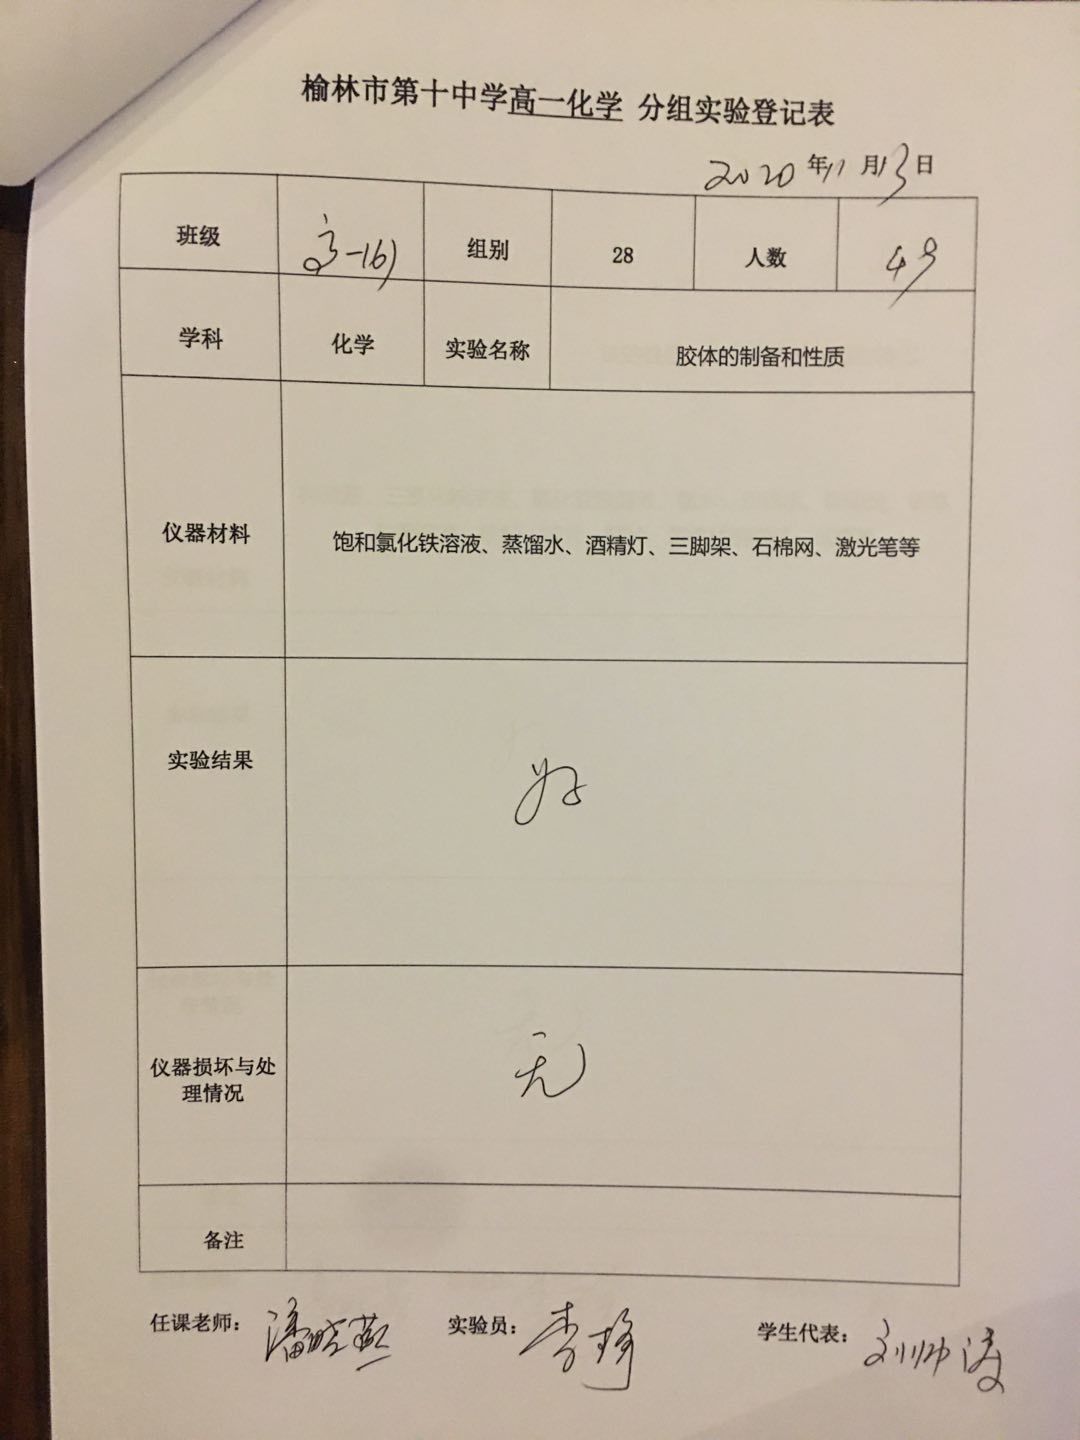 榆林市第十中学高一化学 分组实验登记表
2020年11月13日
班级 高一(6) 组别 28 人数 49
学科 化学 实验名称 胶体的制备和性质
仪器材料 饱和氯化铁溶液、蒸馏水、酒精灯、三脚架、石棉网、激光笔等
实验结果 好
仪器损坏与处
理情况 无
备注
任课老师：潘晓燕 实验员：李 学生代表：刘帅涛